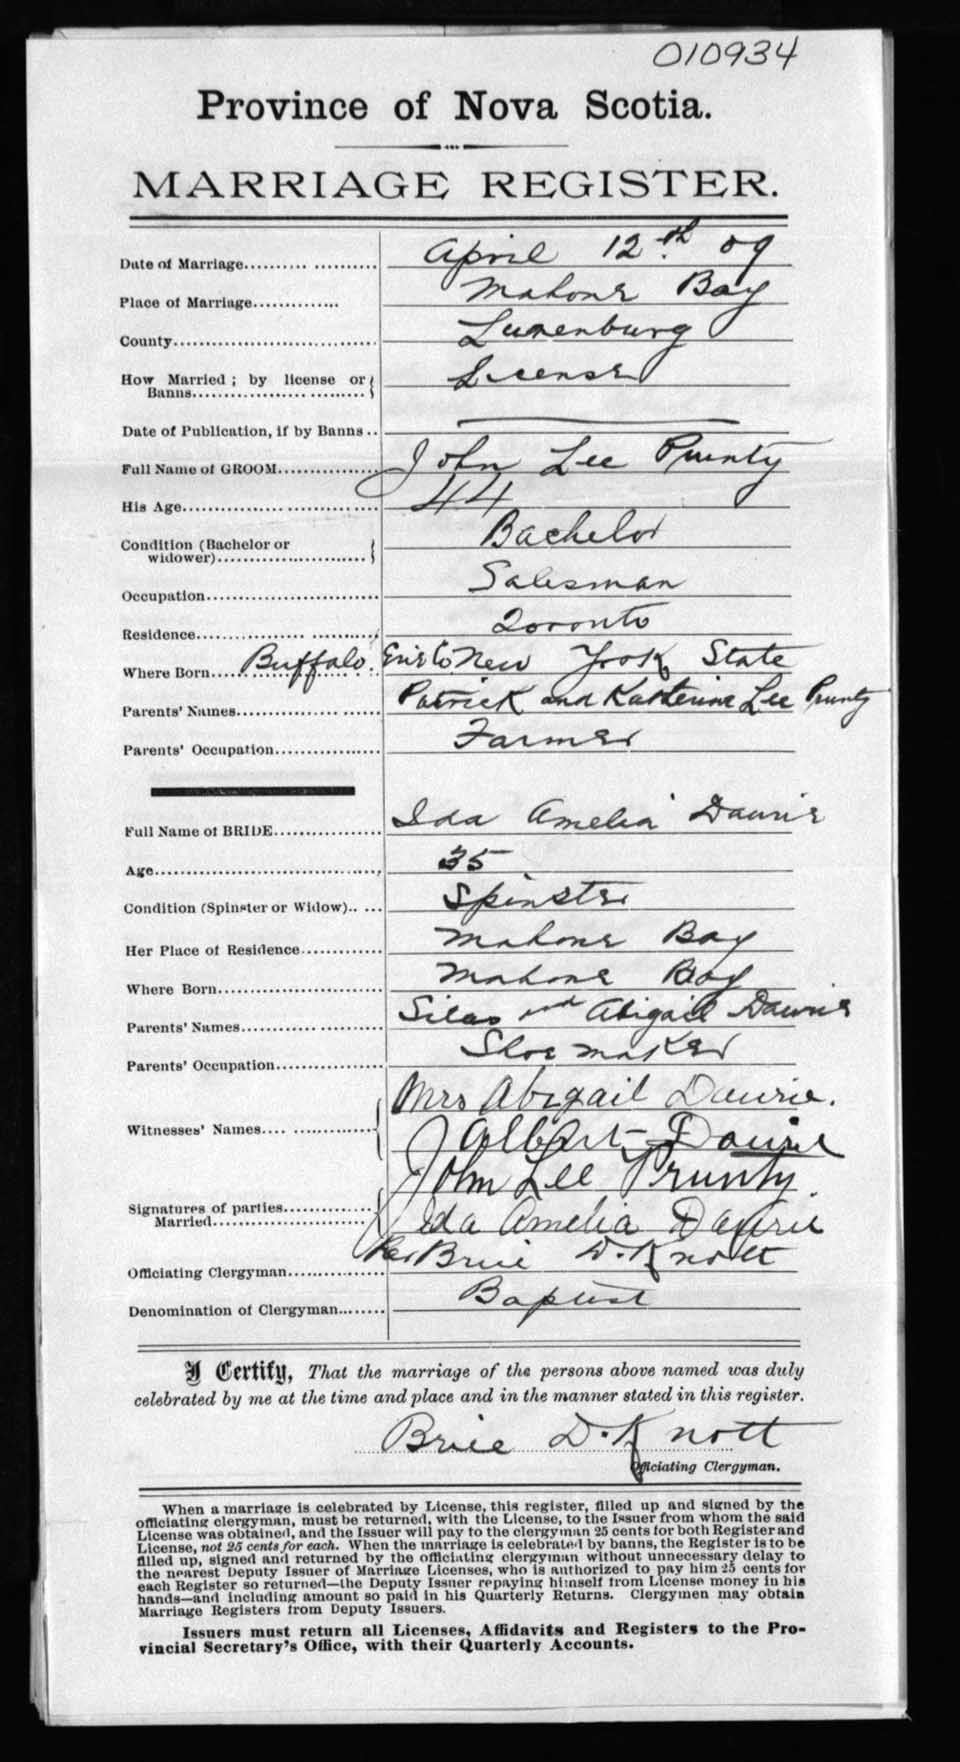 010934
Province of Nova Scotia.
MARRIAGE REGISTER.
Date of Marriage.......... .......... April 12th. 09
Place of Marriage............. Mahone Bay
County.............................. Lunenburg
How Married ; by license or } License
Banns.......................... }
Date of Publication, if by Banns .. ———
Full Name of GROOM............... John Lee Prunty
His Age............................ 44
Condition (Bachelor or } Bachelor
widower)....................... }
Occupation.......................... Salesman
Residence.......................... Toronto
Where Born.... Buffalo. Erie Co New York State
Parents' Names..................... Patrick and Katherine Lee Prunty
Parents' Occupation................ Farmer
Full Name of BRIDE................. Ida Amelia Daurie
Age................................ 35
Condition (Spinster or Widow).. .... Spinster
Her Place of Residence............ Mahone Bay
Where Born......................... Mahone Bay
Parents' Names..................... Silas and Abigail Daurie
Parents' Occupation................ Shoe maker
Mrs Abigail Daurie.
Witnesses' Names.... ..............
J Albert Daurie
John Lee Prunty.
Signatures of parties..............
Married.......................
Ida Amelia Daurie
Officiating Clergyman.............. Rev Brice D. Knott
Denomination of Clergyman........ Baptist
I Certify, That the marriage of the persons above named was duly
celebrated by me at the time and place and in the manner stated in this register.
Brice D. Knott
Officiating Clergyman.
When a marriage is celebrated by License, this register, filled up and signed by the
officiating clergyman, must be returned, with the License, to the Issuer from whom the said
License was obtained, and the Issuer will pay to the clergyman 25 cents for both Register and
License, not 25 cents for each. When the marriage is celebrated by banns, the Register is to be
filled up, signed and returned by the officiating clergyman without unnecessary delay to
the nearest Deputy Issuer of Marriage Licenses, who is authorized to pay him 25 cents for
each Register so returned—the Deputy Issuer repaying himself from License money in his
hands—and including amount so paid in his Quarterly Returns. Clergymen may obtain
Marriage Registers from Deputy Issuers.
Issuers must return all Licenses, Affidavits and Registers to the Pro-
vincial Secretary's Office, with their Quarterly Accounts.